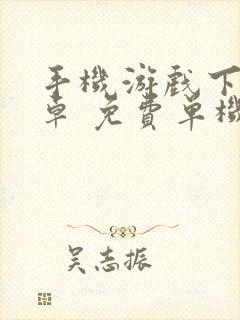 手機游戲下
卓 免費單機
吴志振